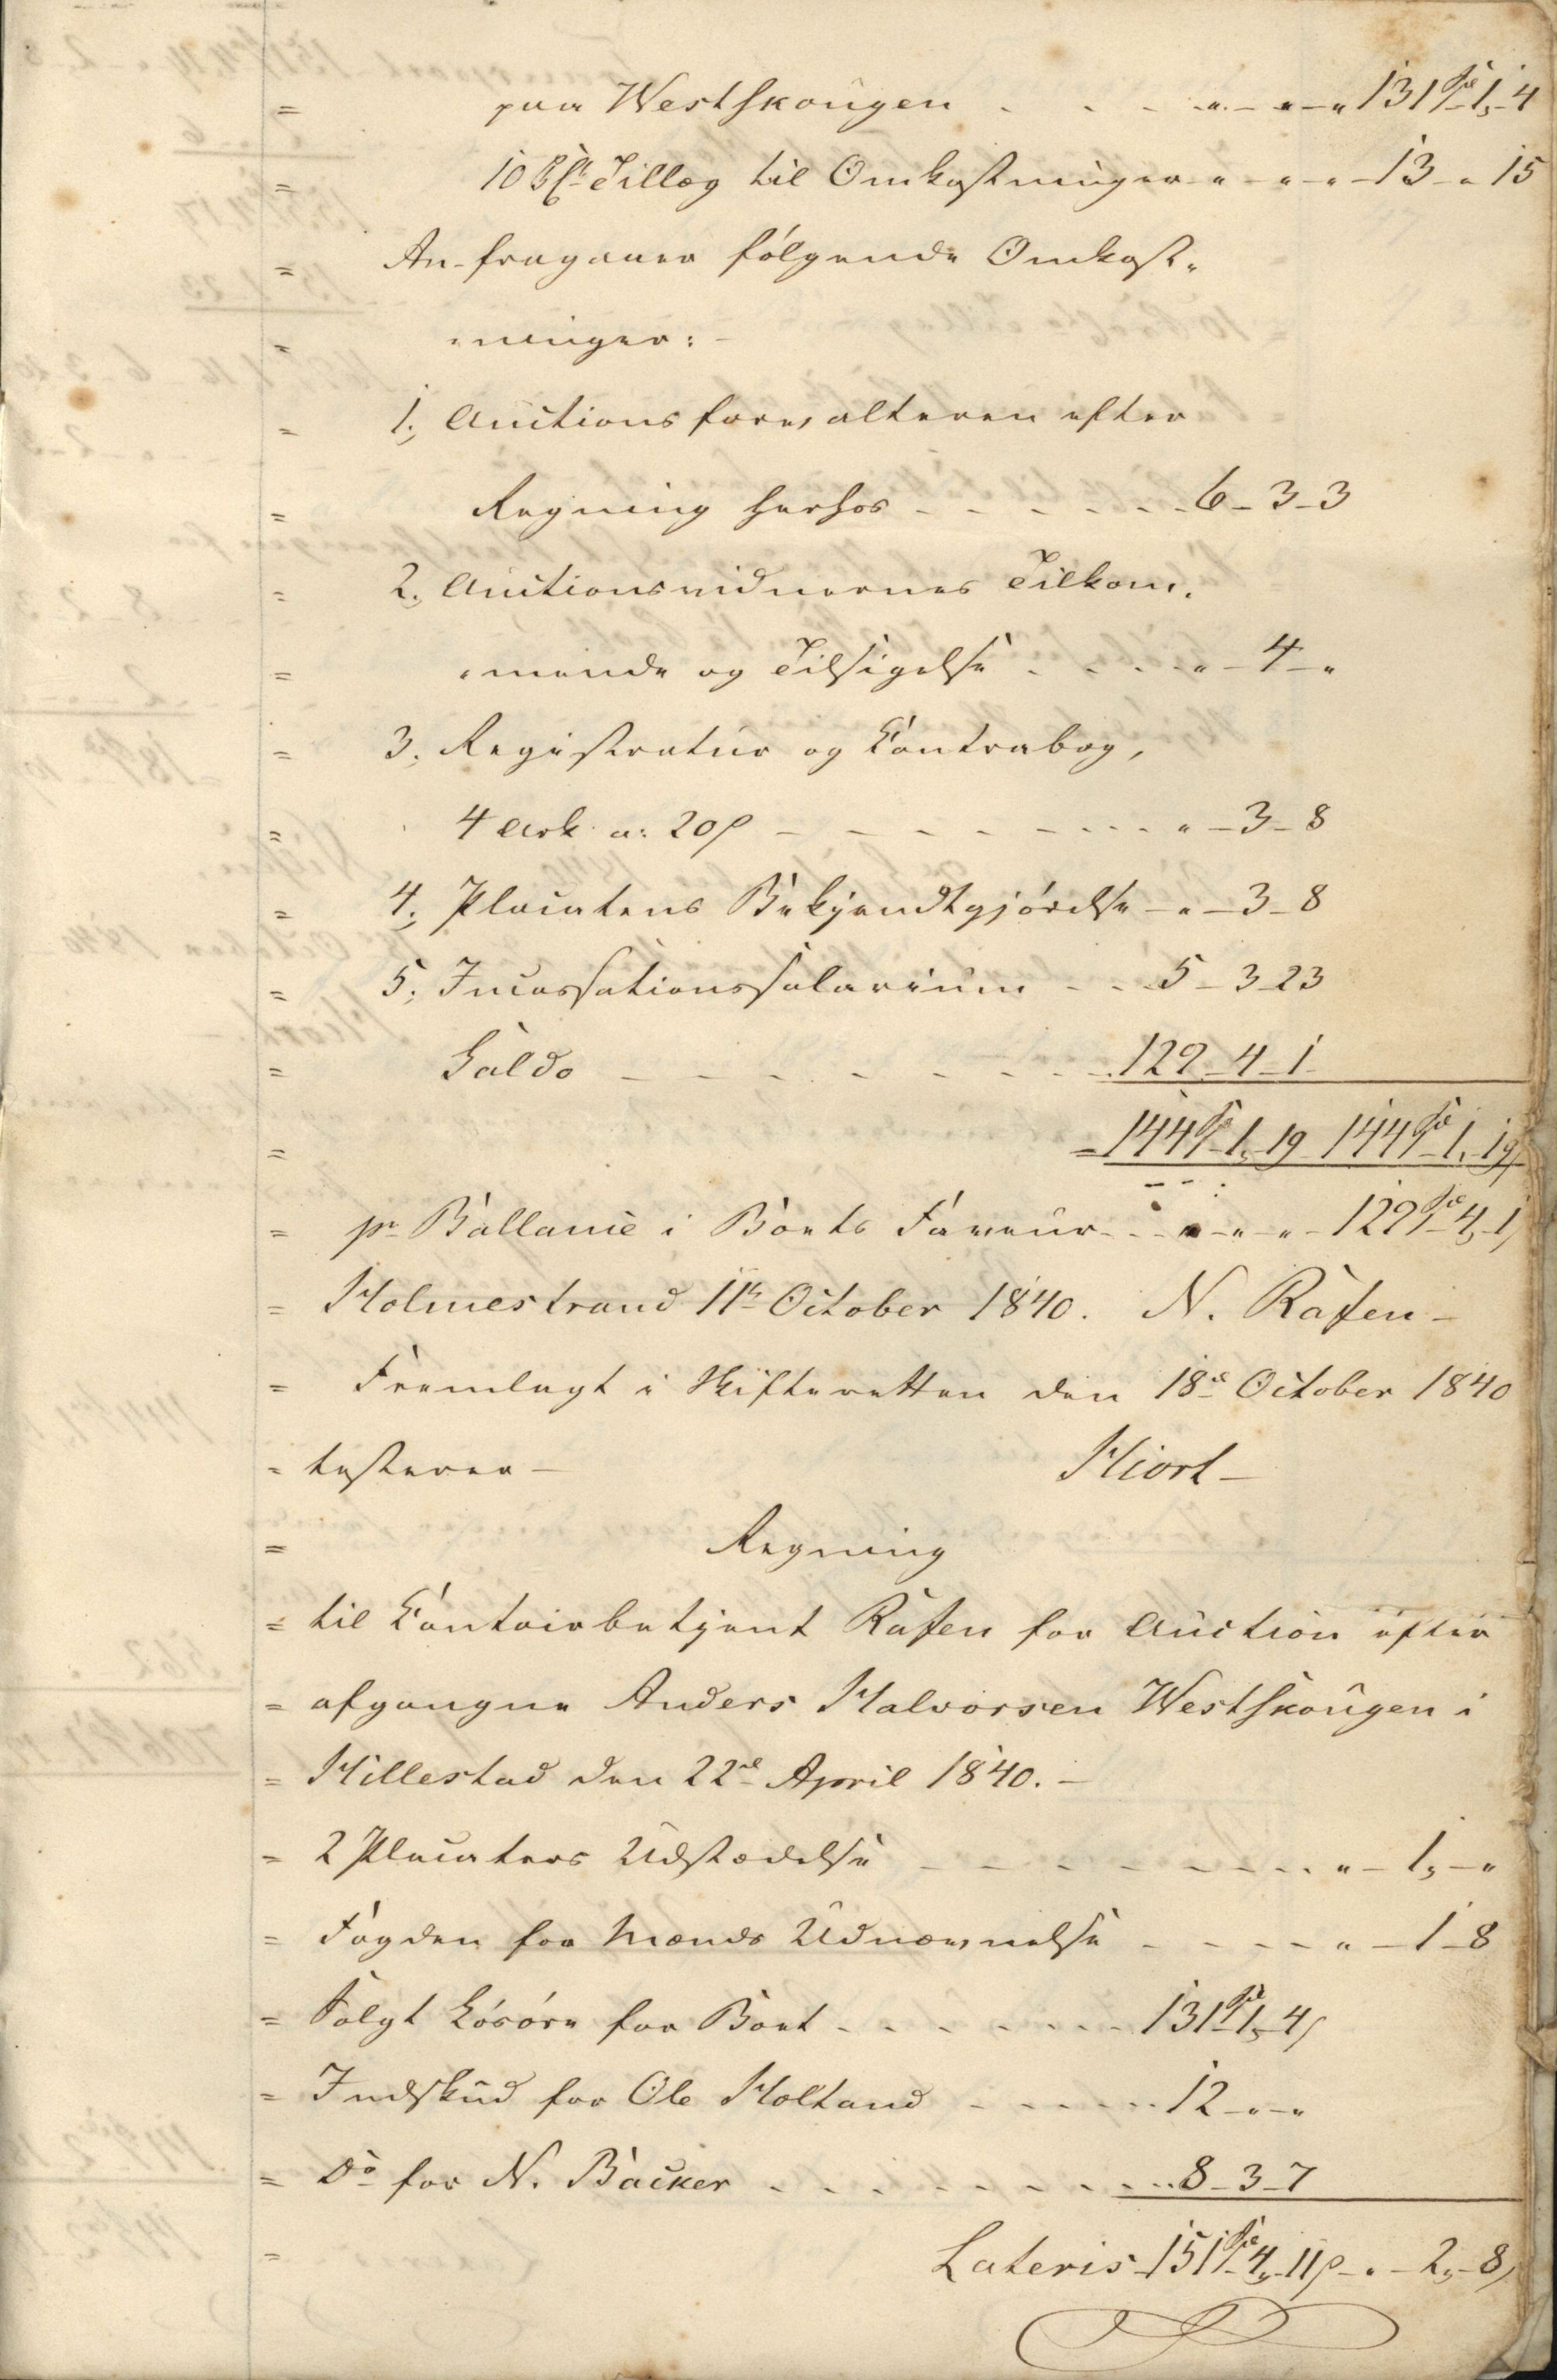 = paa Westskougen . . . „ – „ – „ 131 Sp – 1, – 4
= 10 PCt Tillæg til Omkostninger – „ – „ – „ – 13 – „ 15
= An fragaaer følgende Omkost-
= ninger: –
= 1, Auctionsforvalteren efter
= Regning herhos – – – – – – 6 – 3 – 3
= 2, Auctionsvidnernes Tilkom-
= mende og Tilsigelse . . . . „ – 4 – „
= 3, Registratur og Contrabog,
= 4 Ark a: 20 ß – – – – – – – „ – 3 – 8
= 4, Placatens Bekjendtgjørelse – „ – 3 – 8
= 5, Incassationssalarium – – 5 – 3 – 23
= Saldo – – – – – – – – 129 – 4 – 1
= 144 Sp – 1, – 19 144 Sp – 1, – 19
= pr Ballance i Boets Faveur – – „ – „ – „ – 129 Sp – 4, – 1,
= Holmestrand 11te October 1840. N. Rafen –
= Fremlagt i Skifteretten den 18de October 1840
= testerer – Hiort –
= Regning
= til Contoirbetjent Rafen for Auction efter
= afgangne Anders Halvorsen Westskougen i
= Hillestad den 22de April 1840. –
= 2 Placaters Udstædelse – – – – – – – „ – 1, – „
= Fogden for Mænds Udnævnelse – – – – „ – 1 – 8
= Solgt Løsøre for Boet – – – – – – 131 Sp 1, – 4,
= Indskud for Ole Holtand – – – – 12 – „ – „
= Do for N. Backer – – – – – – 8 – 3 – 7
= Lateris 151 Sp – 4, – 11 ß – „ – 2, – 8,